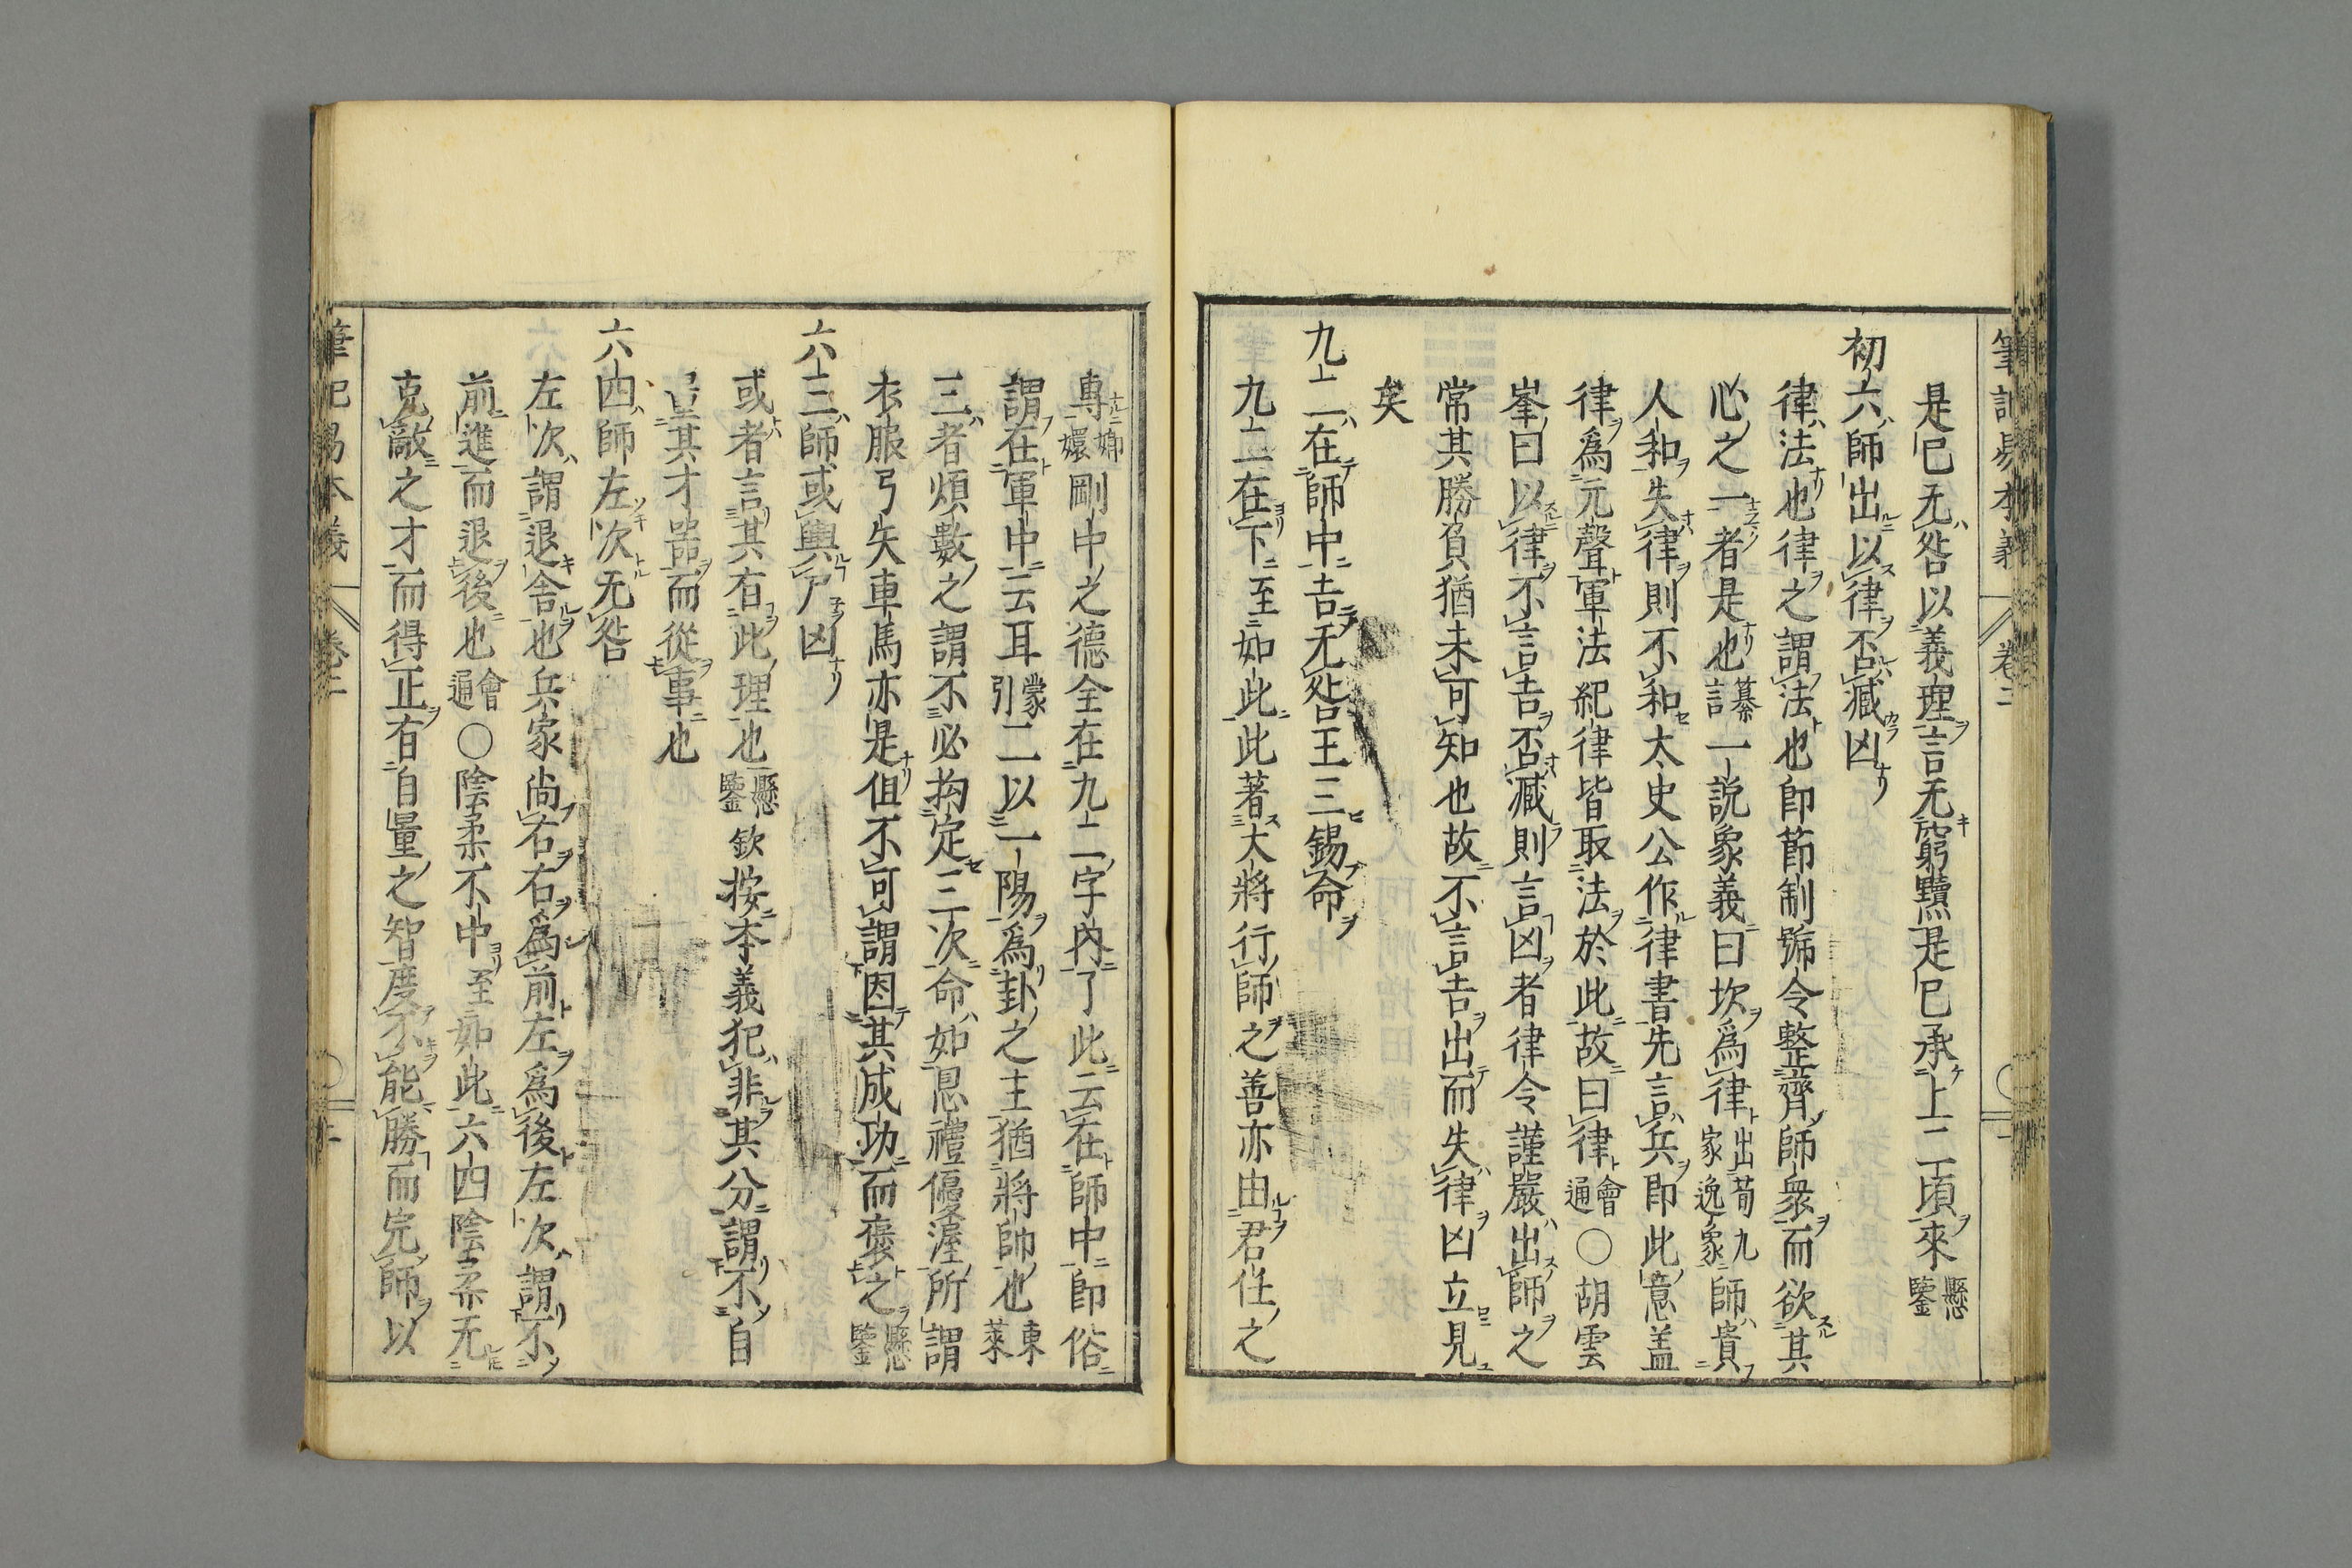 筆記易本義 卷二
是已无咎以義理言无窮黷是已承上二項來懸鑒
初六師出以律否臧凶
律法也律之謂法也卽節制號令整齊師衆而欲其
心之一者是也纂言一說象義曰坎爲律出荀九家逸象師貴
人和失律則不和太史公作律書先言兵卽此意盖
律爲元聲軍法紀律皆取法於此故曰律會通○胡雲
峯曰以律不言吉否臧則言凶者律令謹嚴出師之
常其勝負猶未可知也故不言吉出而失律凶立見
矣
九二在師中吉无咎王三錫命
九二在下至如此此著大將行師之善亦由君任之
專嫏嬛剛中之德全在九二字內了此云在師中卽俗
謂在軍中云耳蒙引二以一陽爲卦之主猶將帥也東萊
三者煩數之謂不必拘定三次命如恩禮優渥所謂
衣服弓矢車馬亦是但不可謂因其成功而褒之懸鑒
六三師或輿尸凶
或者言其有此理也懸鑒欽按本義犯非其分謂不自
量其才噐而從事也
六四師左次无咎
左次謂退舍也兵家尚右右爲前左爲後左次謂不
前進而退後也會通○陰柔不中至如此六四陰柔无
克敵之才而得正有自量之智度不能勝而完師以
筆記易本義 卷二